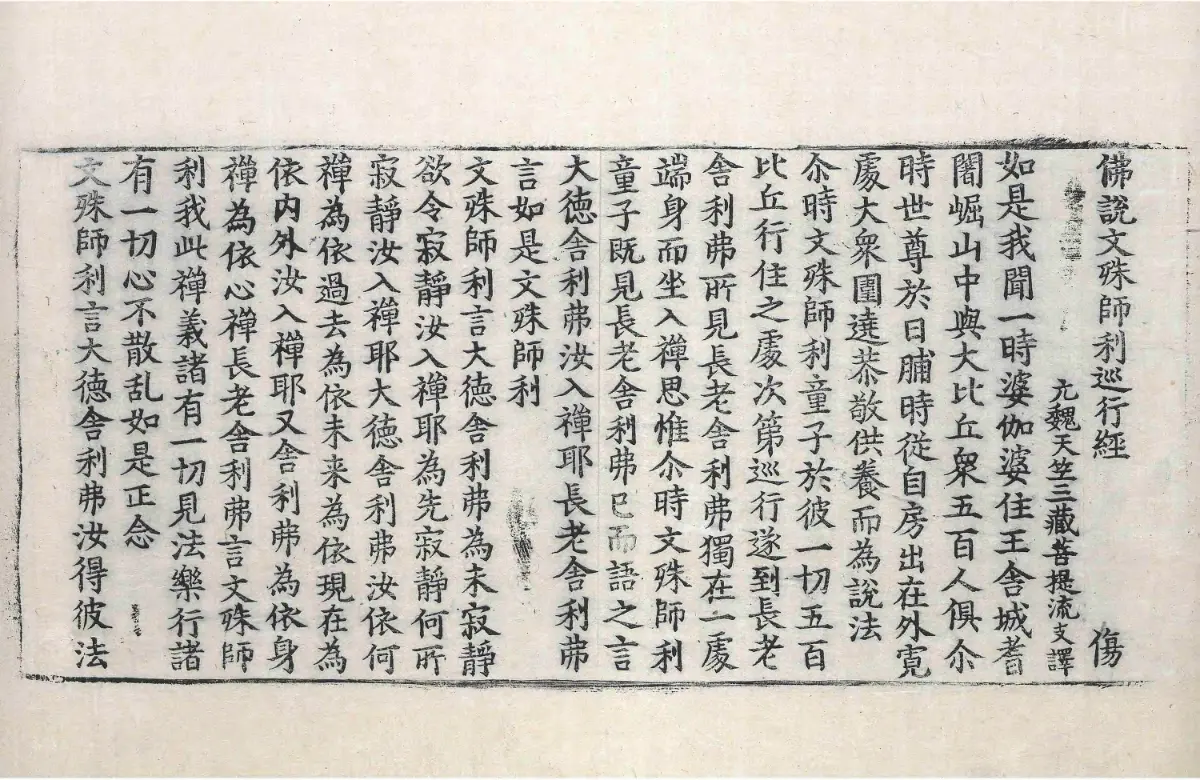 佛說文殊師利巡行經 傷
元魏天竺三藏菩提流支譯
如是我聞一時婆伽婆住王舍城耆
闍崛山中與大比丘衆五百人俱尒
時世尊於日脯時從自房出在外寬
處大衆圍遶恭敬供養而為說法
尒時文殊師利童子於彼一切五百
比丘行住之處次第巡行遂到長老
舍利弗所見長老舍利弗獨在一處
端身而坐入禪思惟尒時文殊師利
童子既見長老舍利弗已而語之言
大德舍利弗汝入禪耶長老舍利弗
言如是文殊師利
文殊師利言大德舍利弗為未寂靜
欲令寂靜汝入禪耶為先寂靜何所
寂靜汝入禪耶大德舍利弗汝依何
禪為依過去為依未来為依現在為
依内外汝入禪耶又舍利弗為依身
禪為依心禪長老舍利弗言文殊師
利我此禪義諸有一切見法樂行諸
有一切心不散乱如是正念
文殊師利言大德舍利弗汝得彼法